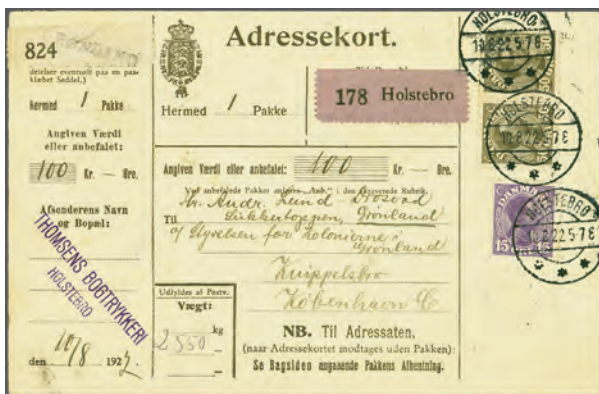 824
GRØNLAND
(detelser eventuelt paa en paa-
klæbet Seddel.)
Hermed 1 Pakke
Angiven Værdi
eller anbefalet:
100 Kr. — Øre.
Afsenderens Navn
og Bopæl:
THOMSENS BOGTRYKKERI
HOLSTEBRO
den 10/8 1922
Adressekort.
Hermed 1 Pakke
178 Holstebro
Angiven Værdi eller anbefalet: 100 Kr. — Øre.
Ved anbefalede Pakker anføres „Anb.“ i den skraverede Rubrik.
Hr. Andr. Lund-Drosvad
Til Sukkertoppen, Grønland
af Styrelsen for Kolonierne i
Grønland
Knippelsbro
København C
Udfyldes af Postv.
Vægt:
2550 kg
NB. Til Adressaten,
(naar Adressekortet modtages uden Pakken):
Se Bagsiden angaaende Pakkens Afhentning.
HOLSTEBRO
10.8.22 5-7 E
HOLSTEBRO
10.8.22 5-7 E
DANMARK
15 15
HOLSTEBRO
10.8.22 5-7 E